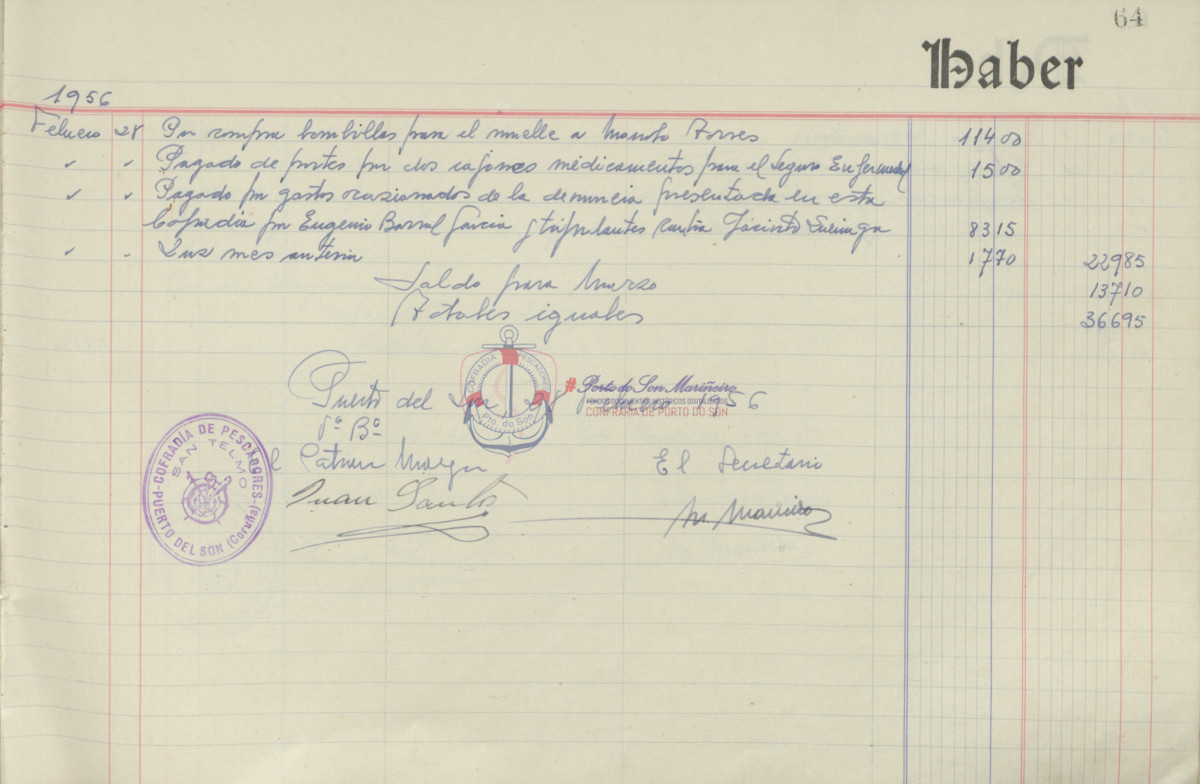 64
Haber
1956
Febrero 28 Por compra bombillas para el muelle a Manolo Torres 114 00
" " Pagado de portes por dos cajones medicamentos para el Seguro Enfermedad 15 00
" " Pagado por gastos ocasionados de la denuncia presentada en esta
Cofradia por Eugenio Barral Garcia y tripulantes contra Jacinto 83 15
" " Luz mes anterior 17 70 229 85
Saldo para Marzo 137 10
Totales iguales 366 95
Puerto del Son 1956
Vº Bº
El Patron Mayor El Secretario
Juan Santos
COFRADIA DE PESCADORES
SAN TELMO
PUERTO DEL SON (Coruña)
COFRADIA PESCADORES
Pto. do Son
# Porto do Son Mariñeiro
FONDO DOCUMENTOS HISTÓRICOS DIGITALIZADOS
CONFRARIA DE PORTO DO SON